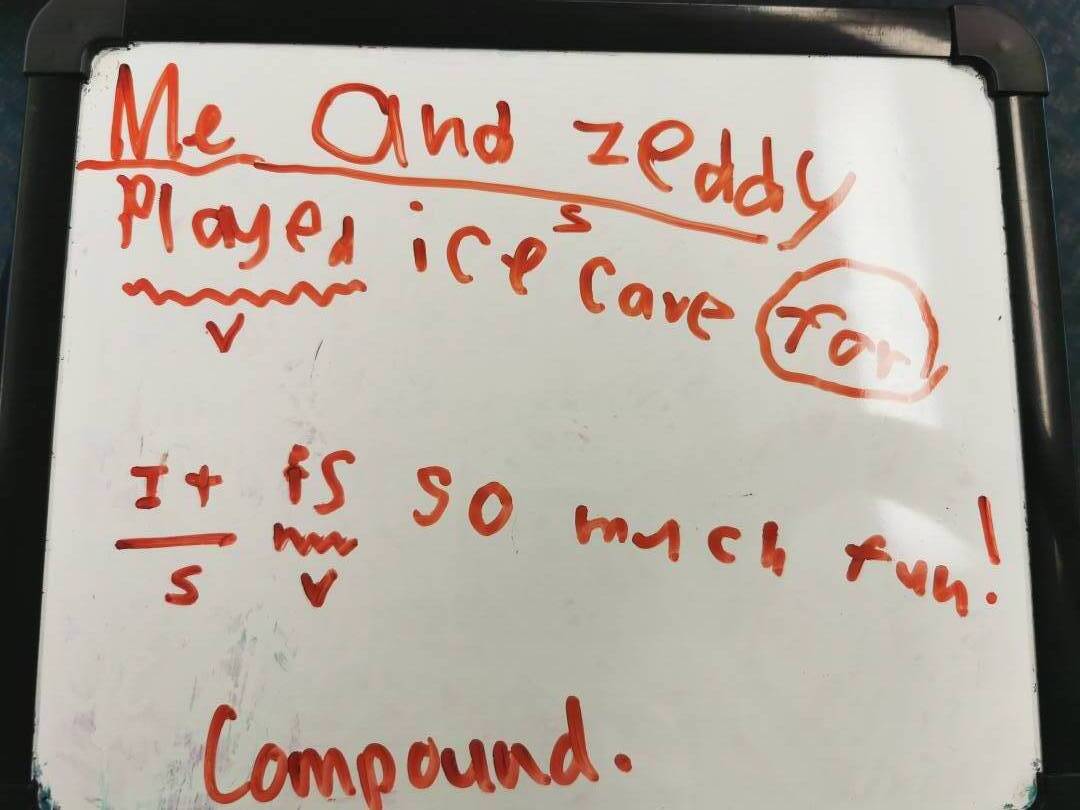 Me and zeddy
s
Played ice cave for
v
It is so much fun!
s v
Compound.